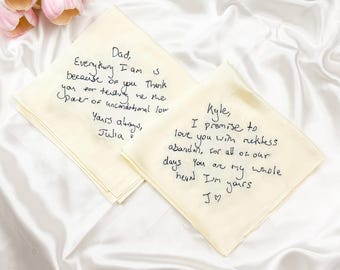 Dad,
Everything I am is
because of you Thank
you for teaching me the
power of unconditional love
Yours always,
Julia
Kyle,
I promise to
love you with reckless
abandon, for all of our
days You are my whole
heart I'm yours
J ♡